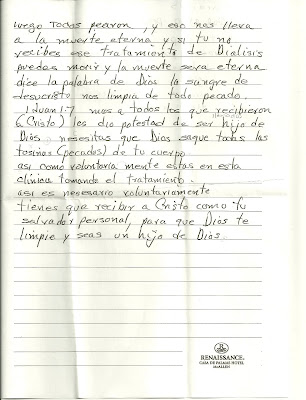 luego Todos pecaron, y eso nos lleva
a la muerte eterna y si tu no
recibes ese tratamiento de Dialisis
puedas morir y la muerte sera eterna
dice la palabra de Dios la sangre de
Jesucristo nos limpia de todo pecado.
1 Juan 1:7 mas a todos los que recibieron
(Cristo) les dio potestad de ser hijo de
Dios. nesesitas que Dios saque todas las
tosinas (pecados) de tu cuerpo
asi como voluntaria mente estas en esta
clinica Tomando el tratamiento.
asi es necesario voluntariamente
tienes que recibir a Cristo como tu
salvador personal, para que Dios te
limpie y seas un hijo de Dios.
RENAISSANCE
CASA DE PALMAS HOTEL
McALLEN